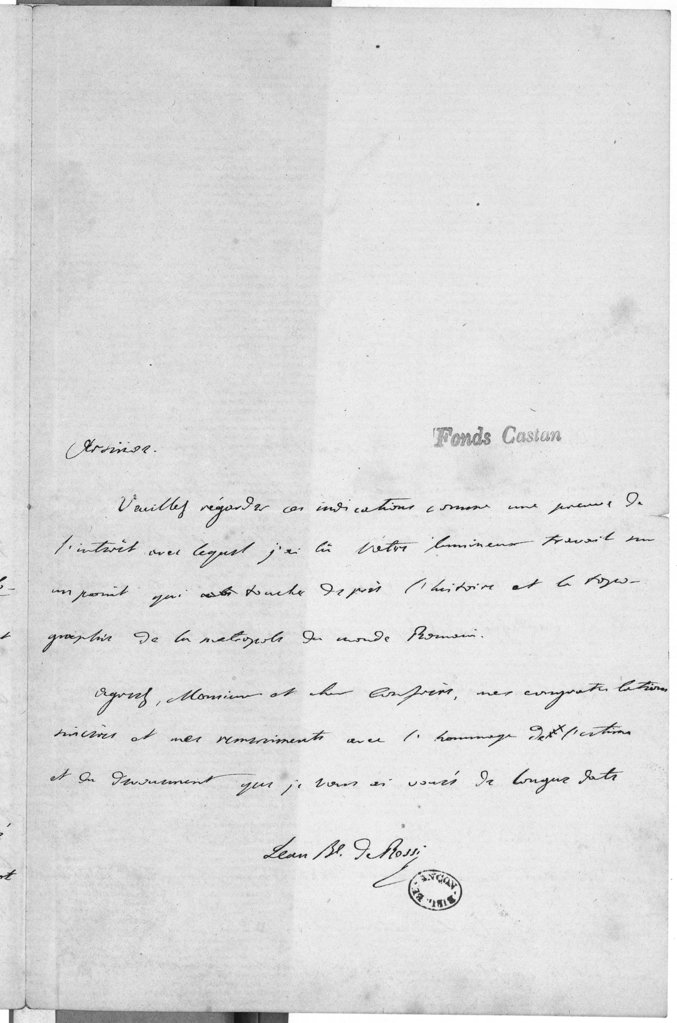 Fonds Castan
Veuillez régarder ces indications comme une preuve de
l'intrêt avec lequel j'ai lû vôtre lumineux travail sur
un point qui touche de près l'histoire et la topo-
graphie de la metropole du monde Romain.
Agréez, Monsieur et cher Confrère, mes congratulations
sincères et mes remerciments avec l'hommage de l'estime
et du devouement que je vous ai voués de longue date
Jean Bt. de Rossi